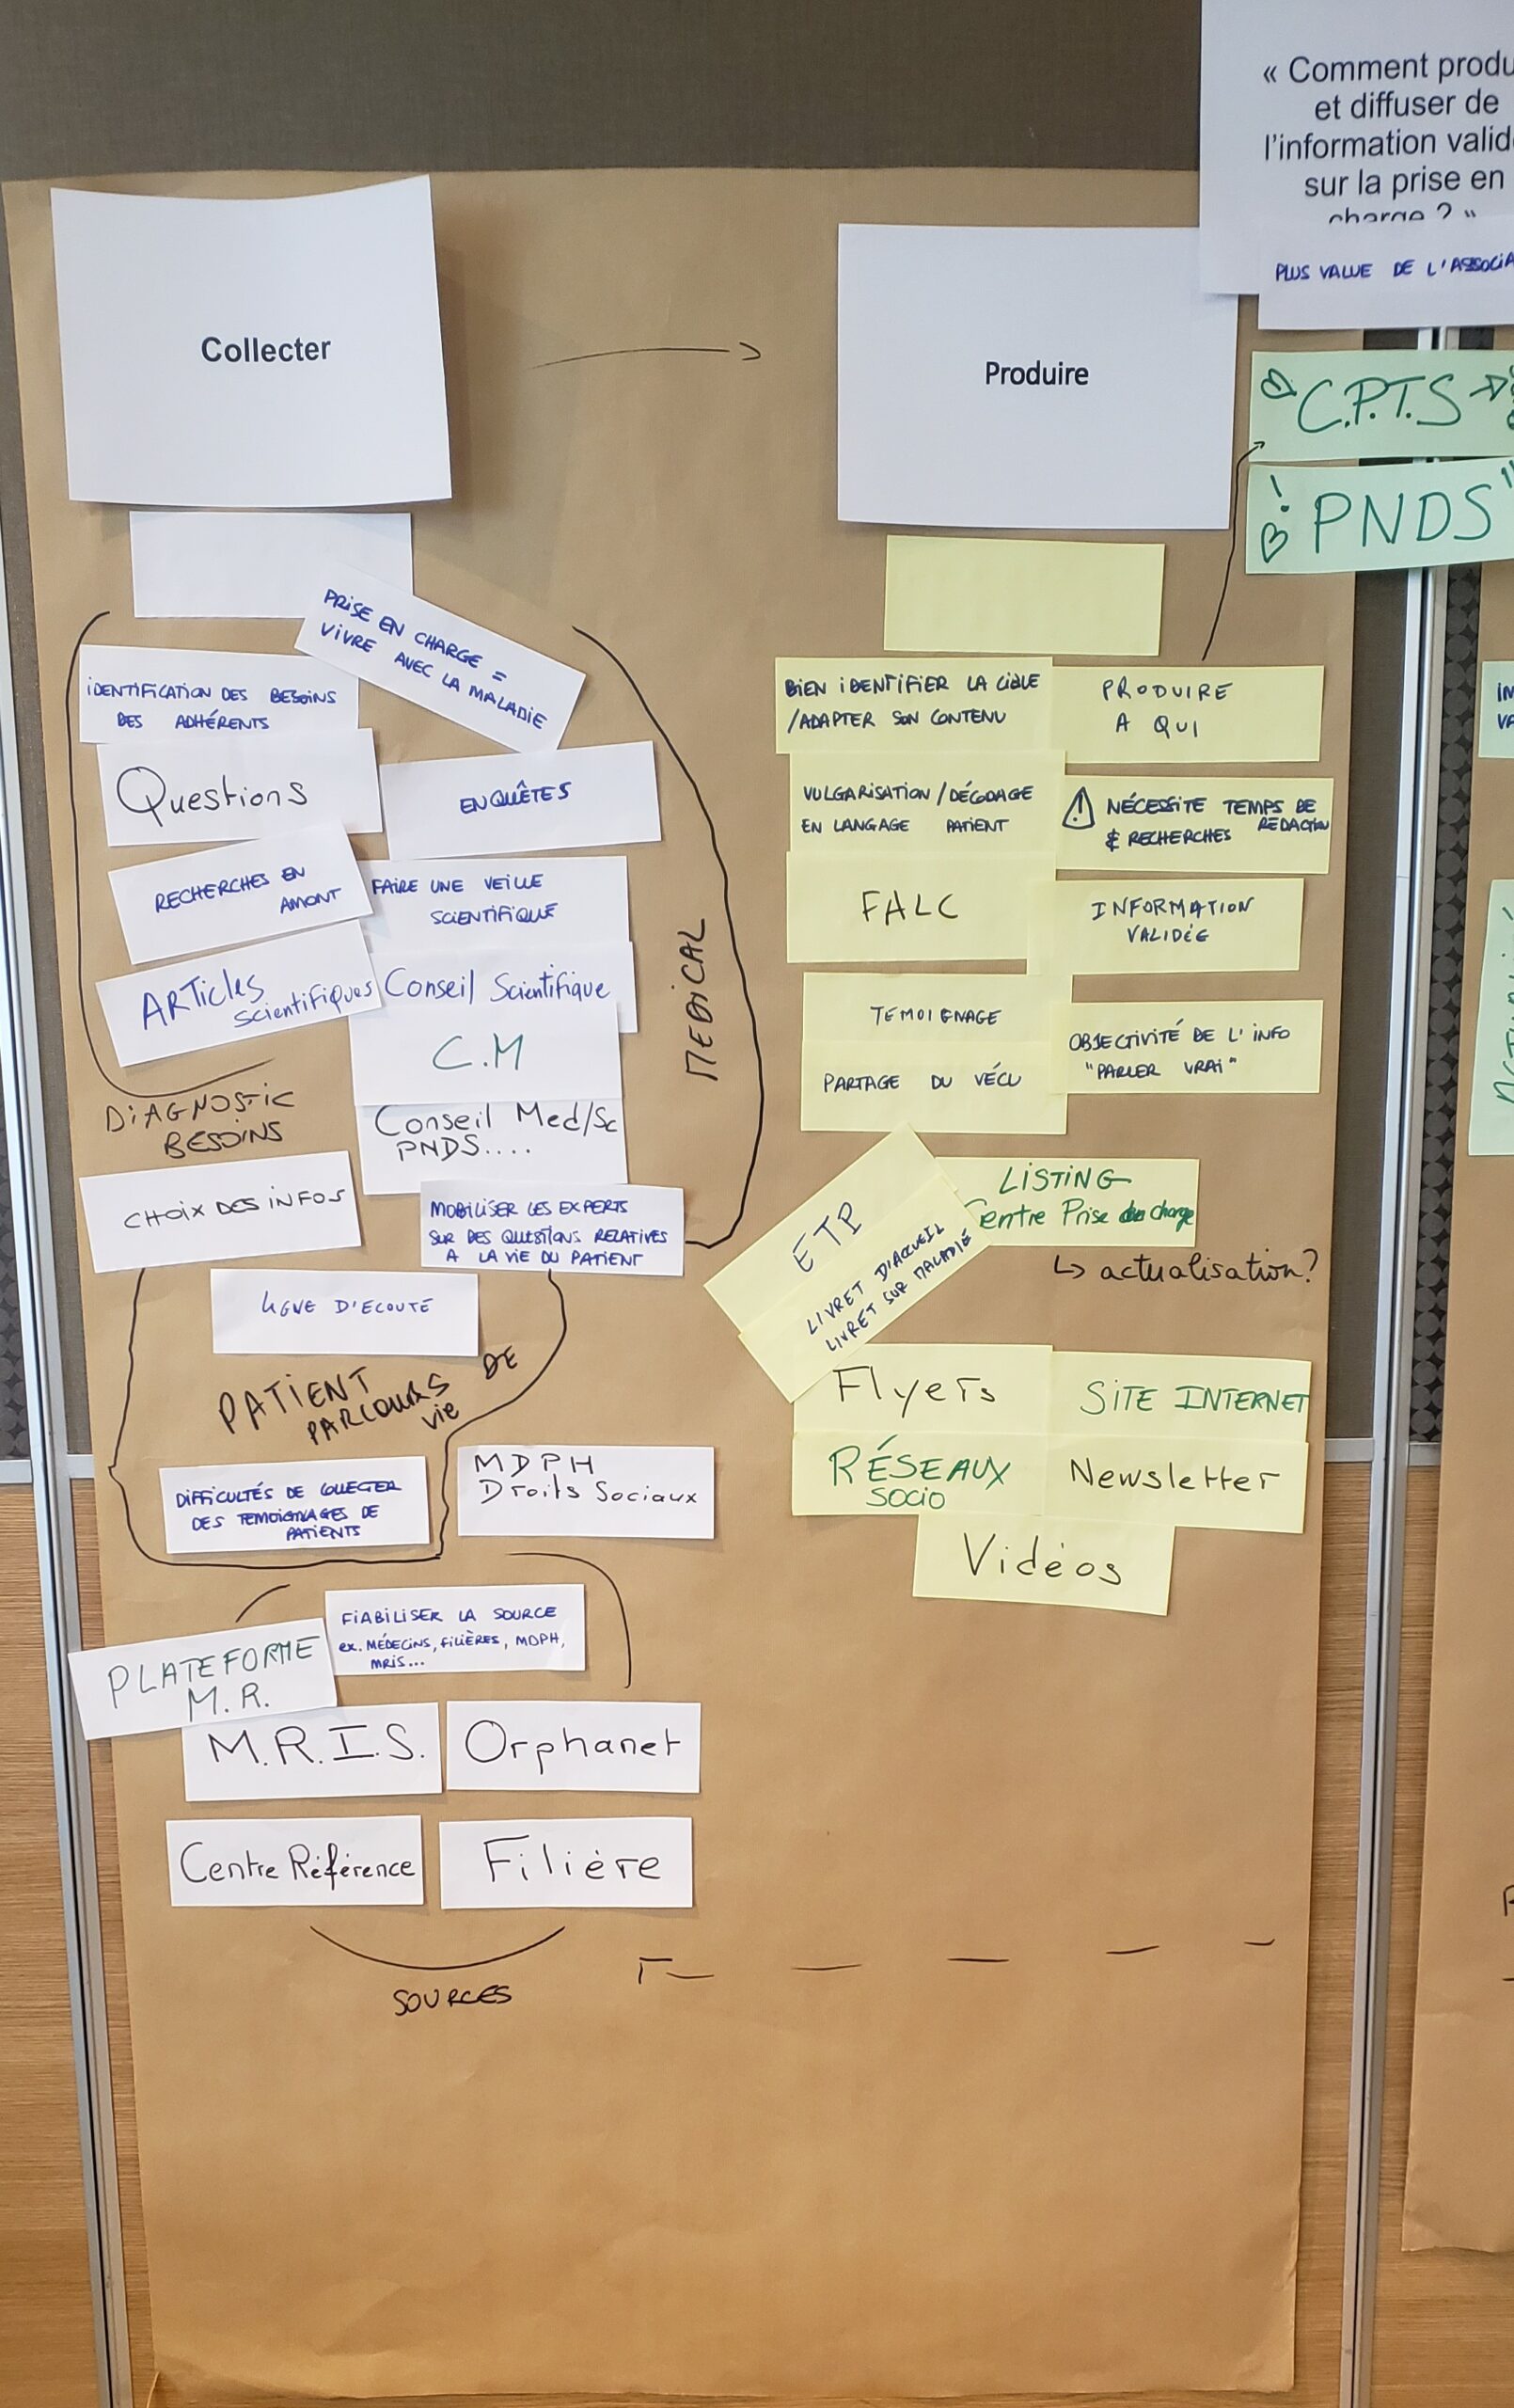 « Comment produ
et diffuser de
l'information valid
sur la prise en
charge ? »
PLUS VALUE DE L'ASSOCIA
C.P.T.S
PNDS
Collecter
PRISE EN CHARGE =
VIVRE AVEC LA MALADIE
IDENTIFICATION DES BESOINS
DES ADHÉRENTS
Questions
ENQUÊTES
RECHERCHES EN
AMONT
FAIRE UNE VEILLE
SCIENTIFIQUE
ARTicles
scientifiques
Conseil Scientifique
C.M
Conseil Med/Sc
PNDS....
MEDICAL
DIAGNOSTIC
BESOINS
CHOIX DES INFOS
MOBILISER LES EXPERTS
SUR DES QUESTIONS RELATIVES
A LA VIE DU PATIENT
LIGNE D'ECOUTE
PATIENT
PARCOURS DE
vie
DIFFICULTÉS DE COLLECTER
DES TEMOIGNAGES DE
PATIENTS
MDPH
Droits Sociaux
FIABILISER LA SOURCE
ex. MÉDECINS, FILIÈRES, MDPH,
MRIS...
PLATEFORME
M.R.
M.R.I.S.
Orphanet
Centre Référence
Filière
SOURCES
Produire
BIEN IDENTIFIER LA CIBLE
/ADAPTER SON CONTENU
PRODUIRE
A QUI
VULGARISATION / DÉCODAGE
EN LANGAGE PATIENT
NÉCESSITE TEMPS DE
& RECHERCHES REDACTION
FALC
INFORMATION
VALIDÉE
TEMOIGNAGE
PARTAGE DU VÉCU
OBJECTIVITÉ DE L'INFO
"PARLER VRAI"
ETP
LIVRET D'ACCUEIL
LIVRET SUR MALADIE
LISTING
Centre Prise en charge
↳ actualisation?
Flyers
SITE INTERNET
RÉSEAUX
SOCIO
Newsletter
Vidéos